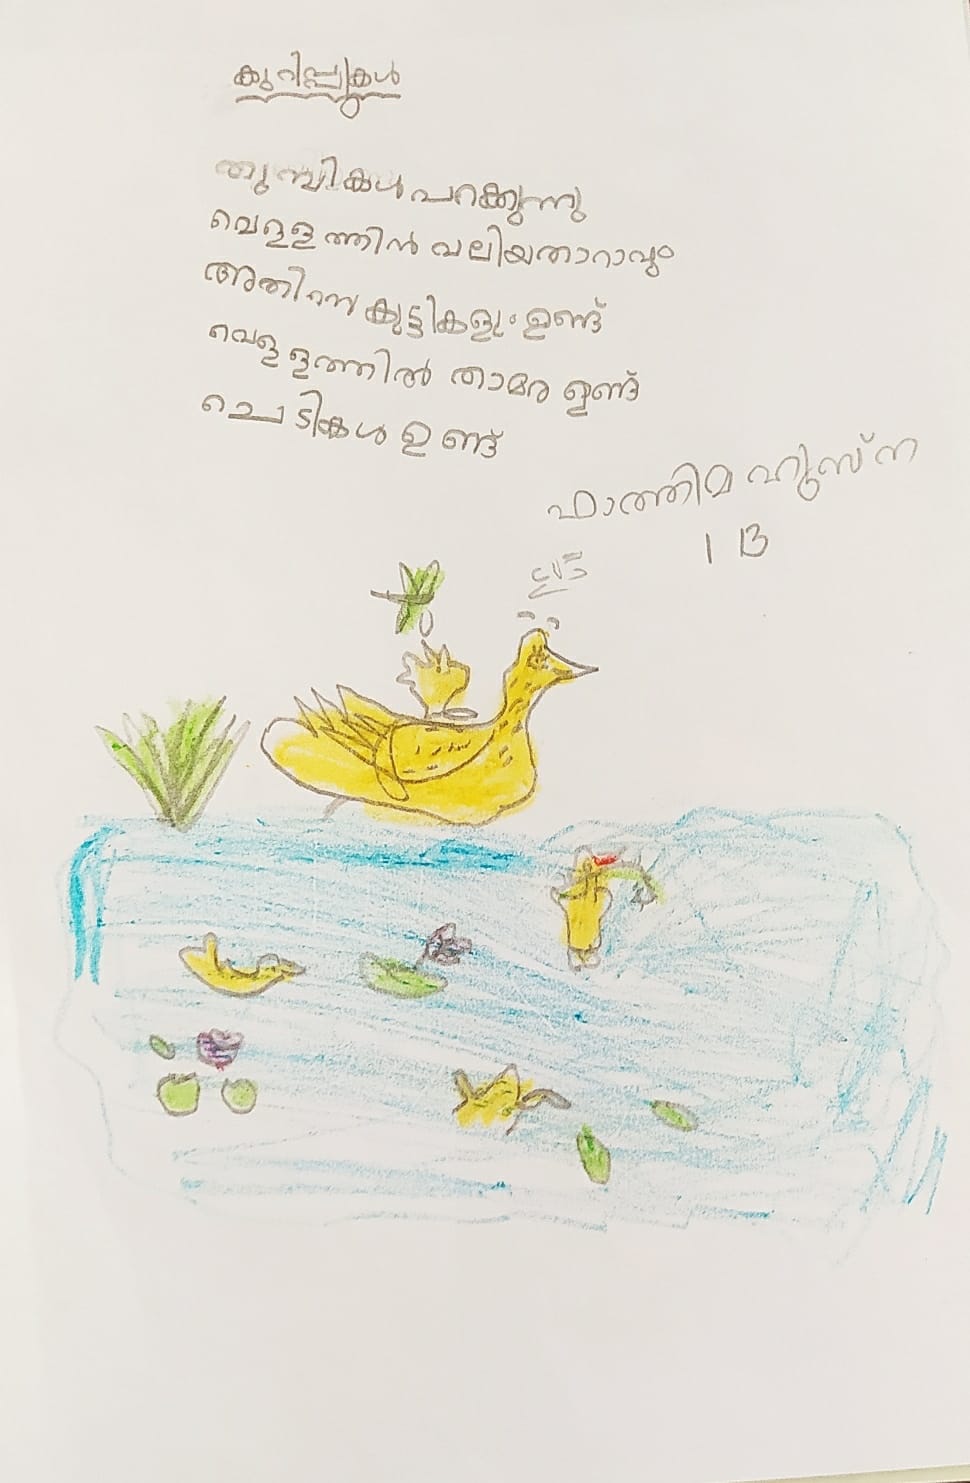 കുറിപ്പുകൾ
തുമ്പികൾ പറക്കുന്നു
വെളളത്തിൻ വലിയതാറാവും
അതിന്റെ കുട്ടികളും ഉണ്ട്
വെള്ളത്തിൽ താമര ഉണ്ട്
ചെടികൾ ഉണ്ട്
ഫാത്തിമ ഹുസ്ന
1 B